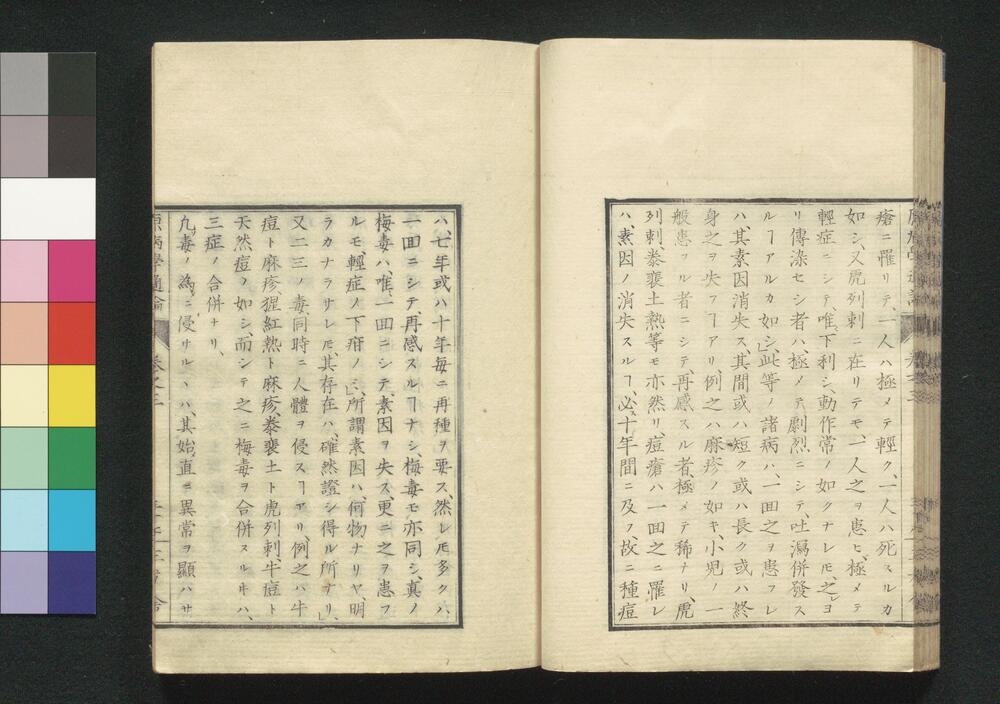 瘡ニ罹リテ、一人ハ極メテ輕ク、一人ハ死スルカ
如シ、又虎列刺ニ在リテモ、一人之ヲ患ヒ、極メテ
輕症ニシテ、唯、下利シ、動作常ノ如クナレ𪜈、之ヨ
リ傳染セシ者ハ、極メテ劇烈ニシテ、吐瀉併發ス
ルヿアルカ如シ、」此等ノ諸病ハ、一回之ヲ患フレ
ハ、其素因消失ス、其間或ハ短ク或ハ長ク或ハ終
身之ヲ失フヿアリ、例之ハ麻疹ノ如キ、小児ノ一
般患フル者ニシテ、再感スル者、極メテ稀ナリ、虎
列刺、泰裴土熱等モ亦然リ、痘瘡ハ一回之ニ罹レ
ハ、素因ノ消失スルヿ、必ス十年間ニ及フ、故ニ種痘
ハ、七年或ハ十年毎ニ再種ヲ要ス、然レ𪜈多クハ、
一回ニシテ、再感スルヿナシ、梅毒モ亦同シ、真ノ
梅毒ハ、唯、一回ニシテ、素因ヲ失ス、更ニ之ヲ患フ
ルモ、輕症ノ下疳ノミ、」所謂素因ハ、何物ナリヤ、明
ラカナラサレ𪜈、其存在ハ、確然證シ得ル所ナリ、」
又二三ノ毒、同時ニ人體ヲ侵スヿアリ、例之ハ牛
痘ト麻疹、猩紅熱ト麻疹、泰裴土ト虎列刺、牛痘ト
天然痘ノ如シ、而シテ之ニ梅毒ヲ合併スルキハ、
三症ノ合併ナリ、
凡毒ノ為ニ侵サルヽハ、其始直ニ異常ヲ顯ハサ
原病學通論
巻之三